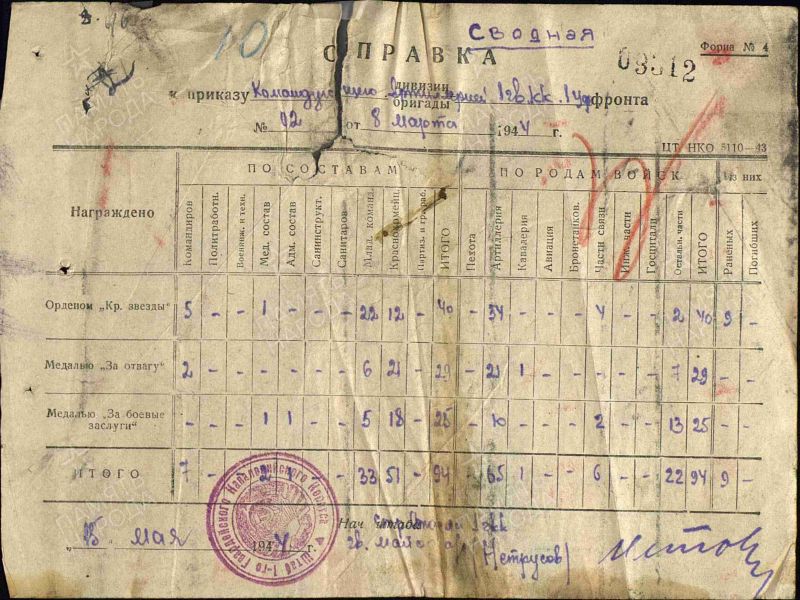 Сводная
10
СПРАВКА
Форма № 4
03512
к приказу Командующего дивизии бригады Артиллерией 1 гв. КК. 1 Укр фронта
№ 02 от 8 марта 1944 г.
ЦТ НКО 5110—43
Награждено ПО СОСТАВАМ ПО РОДАМ ВОЙСК Из них
Командиров Политработн. Военинж. и техн. Мед. состав Адм. состав Санинструкт. Санитаров Млад. команд. Красноармейц. Партиз. и граждан. ИТОГО Пехота Артиллерия Кавалерия Авиация Бронетанков. Части связи Инж. части Госпитали Остальн. части ИТОГО Раненых Погибших
Орденом „Кр. звезды" 5 - - 1 - - - 22 12 - 40 - 34 - - - 4 - - 2 40 9 -
Медалью „За отвагу" 2 - - - - - - 6 21 - 29 - 21 1 - - - - - 7 29 - -
Медалью „За боевые заслуги" - - - 1 1 - - 5 18 - 25 - 10 - - - 2 - - 13 25 - -
ИТОГО 7 - - 2 1 - - 33 51 - 94 - 65 1 - - 6 - - 22 94 9 -
Штаб 1-го Гвардейского Кавалерийского Корпуса
„15 мая 1944 г.
Нач. штаба 1 гв КК
гв. майор
/Нетрусов/